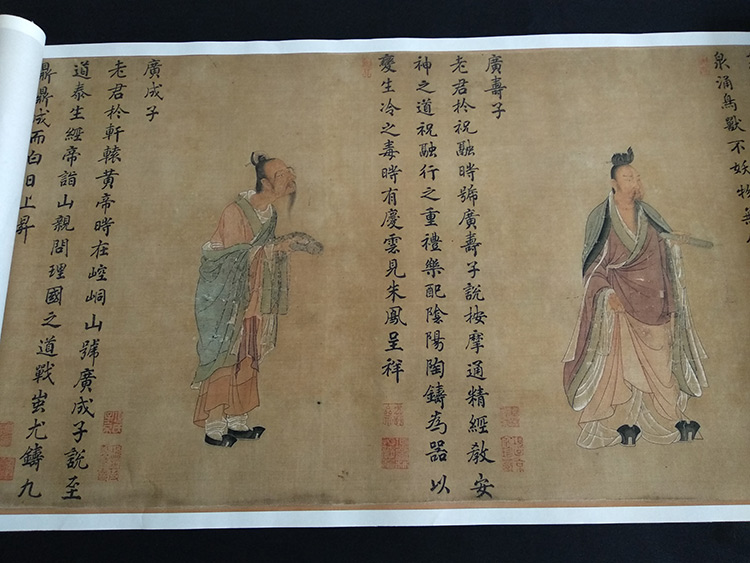 泉涌鳥獸不妖物
廣壽子
老君於祝融時號廣壽子說按摩通精經教安
神之道祝融行之重禮樂配陰陽陶鑄為器以
變生冷之毒時有慶雲見朱鳳呈祥
廣成子
老君於軒轅黃帝時在崆峒山號廣成子說至
道泰生經帝詣山親問理國之道戰蚩尤鑄九
鼎鼎成而白日上昇